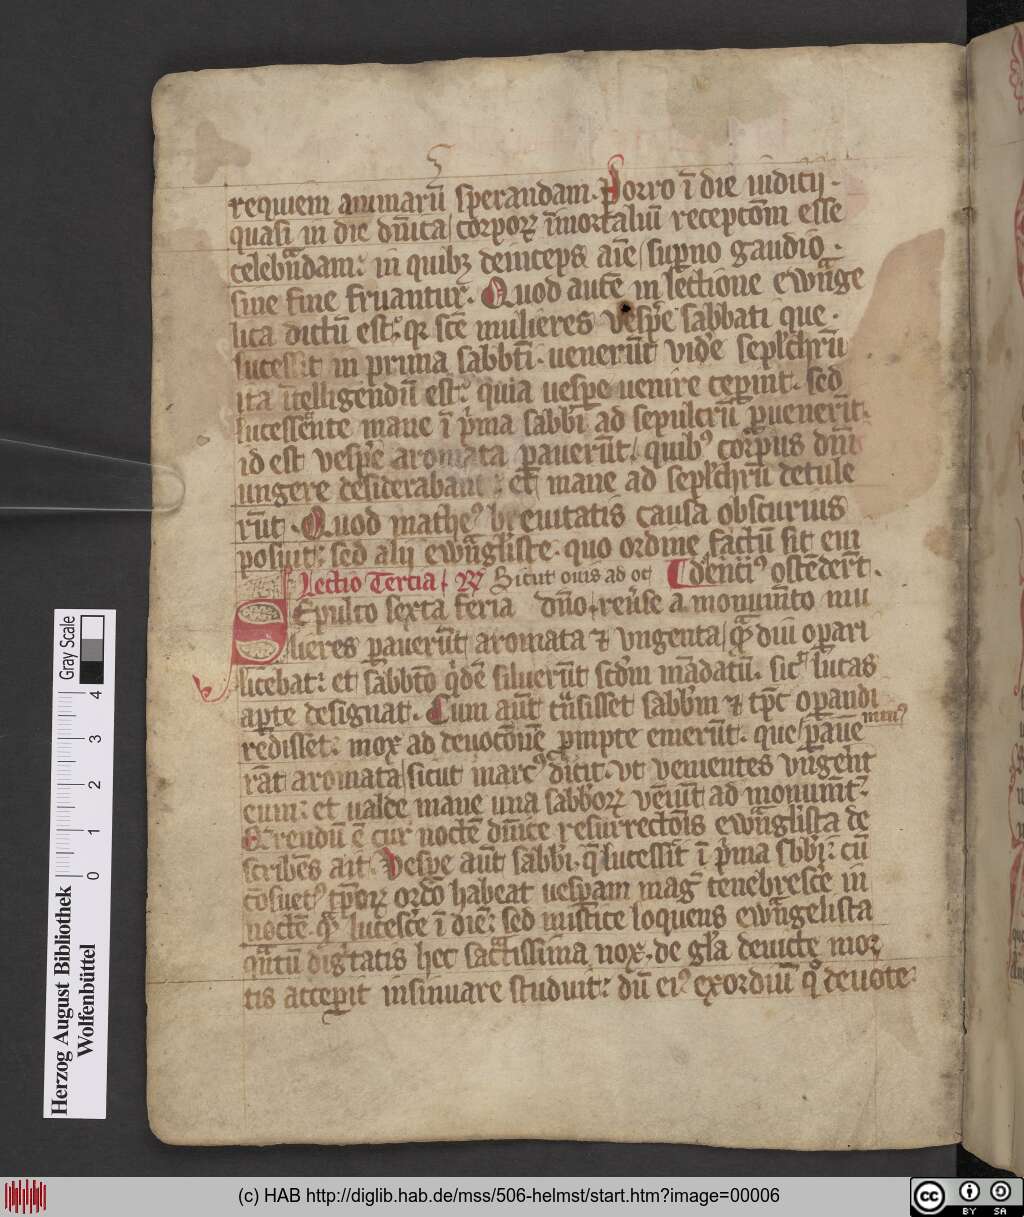 requiem animarū sperandam. Porro ī die iudicij.
quasi in die dn̄ica corporꝝ īmortaliū receptōm esse
celebn̄dam: in quibꝫ deinceps aīe suꝑno gaudio.
sine fine fruantur. Quod autē in lectione ewn̄ge
lica dictū est: qꝛ scē mulieres vespe sabbati que.
lucessit in prima sabbti. uenerūt videe seplchrū
ita ītelligendū est: quia uespe uenire ceꝑint. sed
lucescente mane ī pma sabbi ad sepulcrū ꝑuenerūt.
id est vespe aromata ꝑauerūt quibꝰ corpus dn̄i
ungere desiderabant: et mane ad seplchrū detule
rūt. Quod matheꝰ breuitatis causa obscurius
posuit: sed alij ewn̄gliste. quo ordine factū sit eui
Lectio Tertia ℟ Sicut ouis ad oc dentiꝰ ostēderūt.
Sepulto sexta feria dn̄o reūse a monumn̄to mu
lieres ꝑauerūt aromata ⁊ vngenta qm̄ diu oꝑari
licebat: et sabbto qdē siluerūt scdm mādatū. sic lucas
aꝑte designat. Cum aūt tn̄sisset sabbm ⁊ tꝑc oꝑandi
redisset: mox ad deuocōnē ꝓmpte emerūt. que ꝑaue minꝰ
rāt aromata sicut marcꝰ dicit. vt venientes vngeēt
eum: et ualde mane una sabborꝝ veniūt ad monumn̄t:
Querendū ē cur noctē dn̄ice resurrectōis ewn̄glista de
scribēs ait. Vespe aūt sabbi. q̄ lucessit ī pma sbbi: cū
cōsuetꝰ tꝑorꝝ ordō habeat uesꝑam mag tenebresce in
noctē. qm̄ lucesce ī diē: sed mistice loquens ewn̄gelista
qn̄tū dignitatis hec sacttissima nox. de gla deuicte mor
tis acceꝑit insinuare studuit: dū eiꝰ exordiū qͦ deuote
Gray Scale
4
3
2
1
0
Herzog August Bibliothek
Wolfenbüttel
(c) HAB http://diglib.hab.de/mss/506-helmst/start.htm?image=00006
cc BY SA